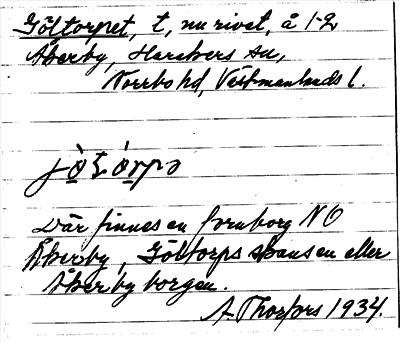 Göltorpet, t, nu rivet, å 1-2
Åkerby, Harakers sn,
Norrbo hd, Västmanlands l.
Där finnes en fornborg NO
Åkerby, Göltorps skansen eller
Åkerby borgen.
A Thorfors 1934.